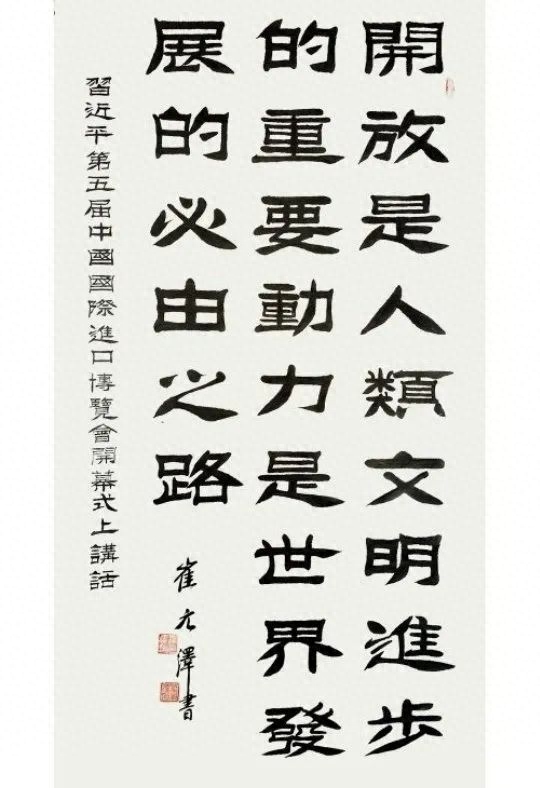 開放是人類文明進步
的重要動力是世界發
展的必由之路
習近平第五届中國國際進口博覽會開幕式上講話
崔 澤書